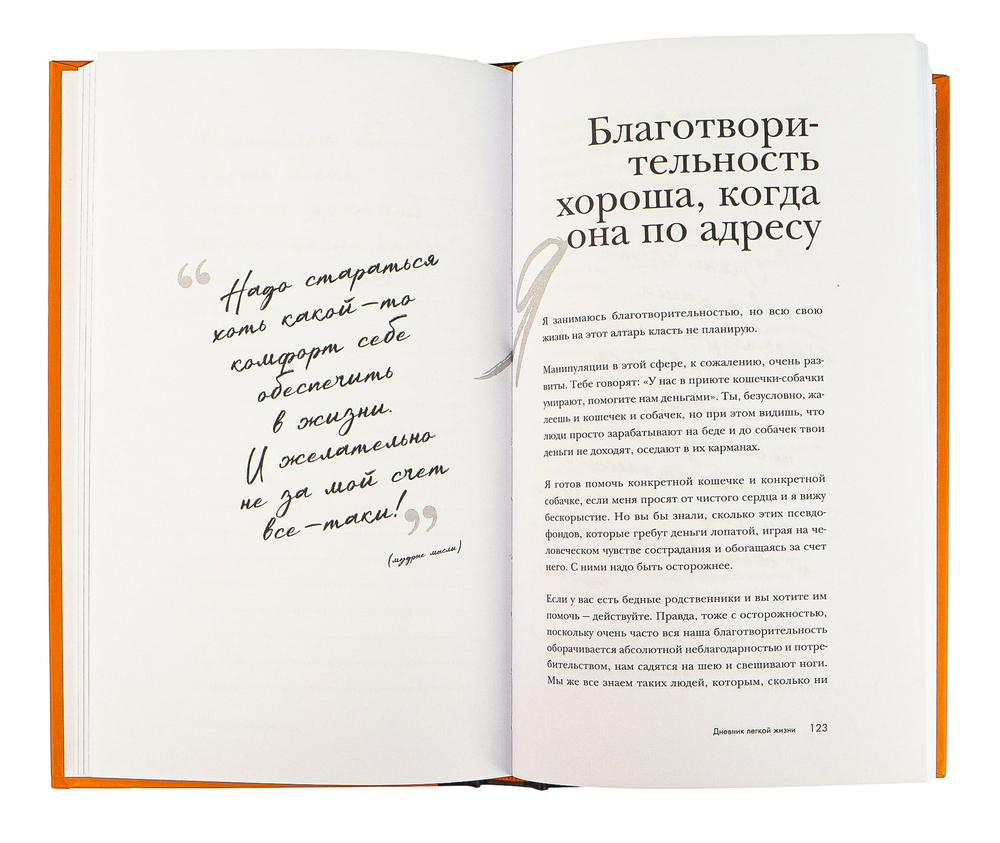 “
Надо стараться
хоть какой-то
комфорт себе
обеспечить
в жизни.
И желательно
не за мой счет
все-таки!
”
(мудрые мысли)
Благотвори-
тельность
хороша, когда
она по адресу
Я занимаюсь благотворительностью, но всю свою
жизнь на этот алтарь класть не планирую.
Манипуляции в этой сфере, к сожалению, очень раз-
виты. Тебе говорят: «У нас в приюте кошечки-собачки
умирают, помогите нам деньгами». Ты, безусловно, жа-
леешь и кошечек и собачек, но при этом видишь, что
люди просто зарабатывают на беде и до собачек твои
деньги не доходят, оседают в их карманах.
Я готов помочь конкретной кошечке и конкретной
собачке, если меня просят от чистого сердца и я вижу
бескорыстие. Но вы бы знали, сколько этих псевдо-
фондов, которые гребут деньги лопатой, играя на че-
ловеческом чувстве сострадания и обогащаясь за счет
него. С ними надо быть осторожнее.
Если у вас есть бедные родственники и вы хотите им
помочь – действуйте. Правда, тоже с осторожностью,
поскольку очень часто вся наша благотворительность
оборачивается абсолютной неблагодарностью и потре-
бительством, нам садятся на шею и свешивают ноги.
Мы же все знаем таких людей, которым, сколько ни
Дневник легкой жизни 123